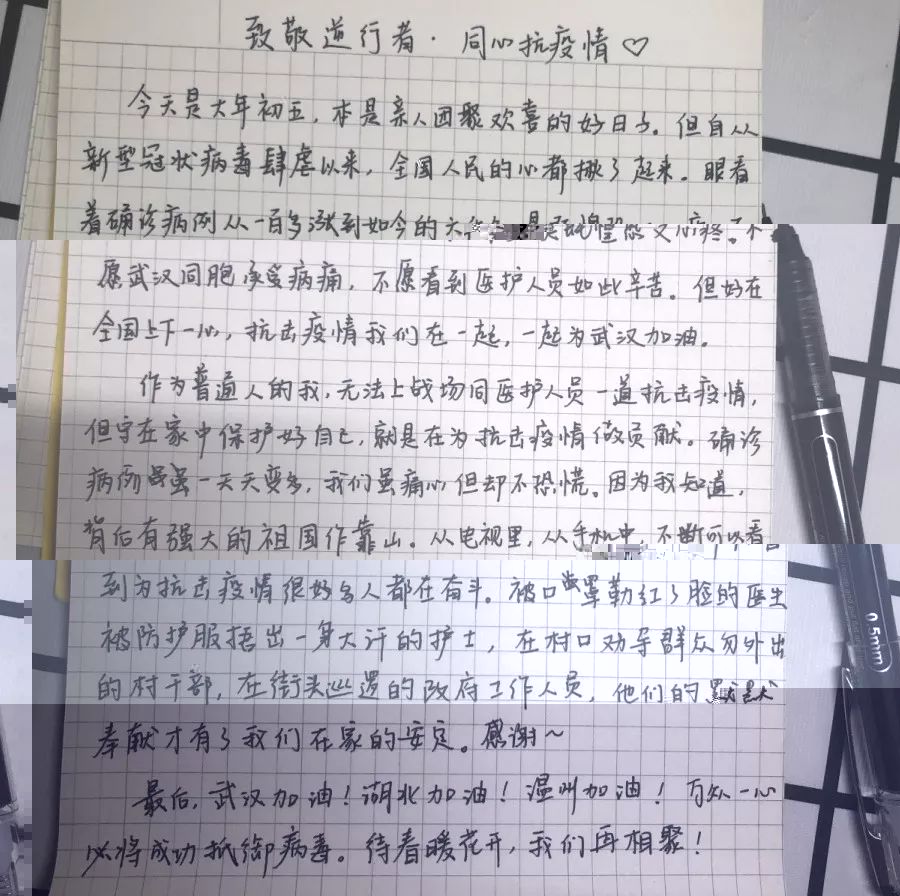 致敬逆行者·同心抗疫情♡
今天是大年初五，本是亲人团聚欢喜的好日子。但自从
新型冠状病毒肆虐以来，全国人民的心都揪了起来。眼看
着确诊病例从一百多涨到如今的六千多，是既惶恐又心疼。不
愿武汉同胞承受病痛，不愿看到医护人员如此辛苦。但好在
全国上下一心，抗击疫情我们在一起，一起为武汉加油。
作为普通人的我，无法上战场同医护人员一道抗击疫情，
但守在家中保护好自己，就是在为抗击疫情做贡献。确诊
病例虽一天天变多，我们虽痛心但却不恐慌。因为我知道，
背后有强大的祖国作靠山。从电视里，从手机中，不断可以看
到为抗击疫情很好多人都在奋斗。被口罩勒红了脸的医生
被防护服捂出一身大汗的护士，在村口劝导群众勿外出
的村干部，在街头巡逻的政府工作人员，他们的默默
奉献才有了我们在家的安定。感谢～
最后，武汉加油！湖北加油！温州加油！万众一心
必将成功抵御病毒。待春暖花开，我们再相聚！
0.5mm